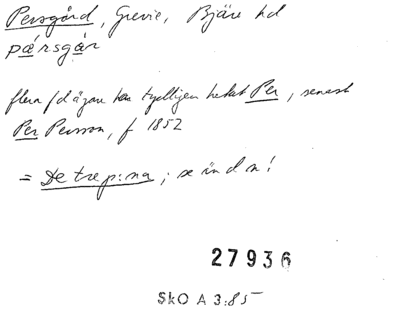 Persgård, Grevie, Bjäre hd
pærsgår
flera f d ägare har tydligen hetat Per, senast
Per Persson, f 1852
= De tre p:na; se ind n!
27936
SkO A 3:85